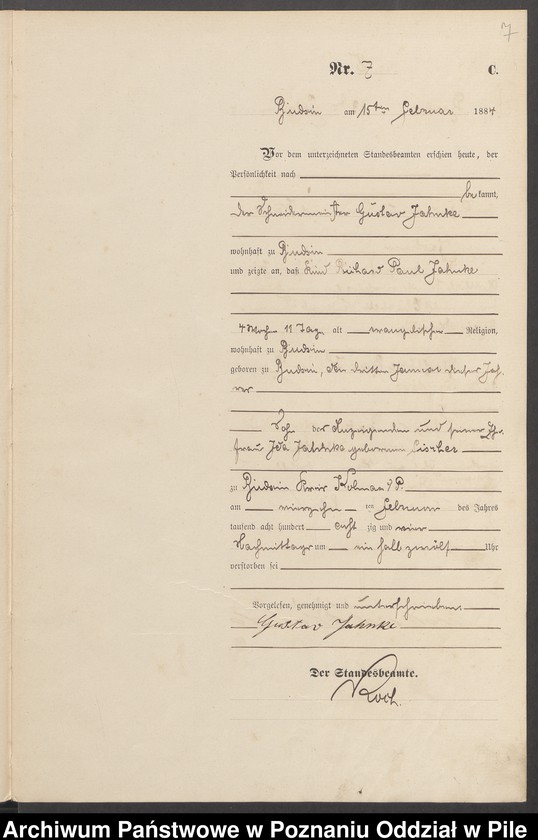 7
Nr. 7 C.
Budsin am 15ten Februar 1884
Vor dem unterzeichneten Standesbeamten erschien heute, der
Persönlichkeit nach
bekannt,
der Schneidermeister Gustav Jahnke
wohnhaft zu Budsin
und zeigte an, daß Kind Richard Paul Jahnke
4 Woch 11 Tage alt evangelischer Religion,
wohnhaft zu Budsin
geboren zu Budsin, den dritten Januar dieses Jah-
res
Sohn des Anzeigenden und seiner Ehe-
frau Ida Jahnke geborenen
zu Budsin Kreis Kolmar i/P.
am vierzehn ten Februar des Jahres
tausend acht hundert acht zig und vier
Nachmittags um ein halb zwölf Uhr
verstorben sei
Vorgelesen, genehmigt und unterschrieben.
Gustav Jahnke
Der Standesbeamte.
Koch.
Archiwum Państwowe w Poznaniu Oddział w Pile